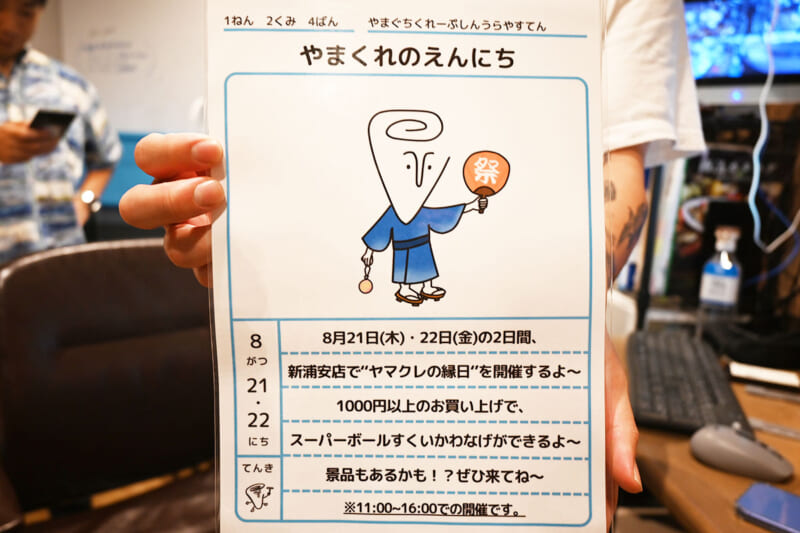 1ねん 2くみ 4ばん やまぐちくれーぷしんうらやすてん
やまくれのえんにち
祭
8がつ21・22にち
8月21日(木)・22日(金)の2日間、
新浦安店で“ヤマクレの縁日”を開催するよ〜
1000円以上のお買い上げで、
スーパーボールすくいかわなげができるよ〜
てんき
景品もあるかも！？ぜひ来てね〜
※11:00~16:00での開催です。